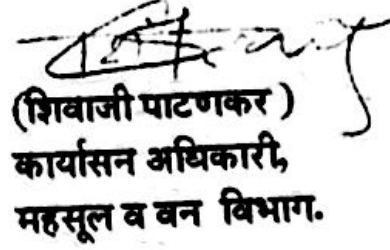 (शिवाजी पाटणकर )
कार्यासन अधिकारी,
महसूल व वन विभाग.